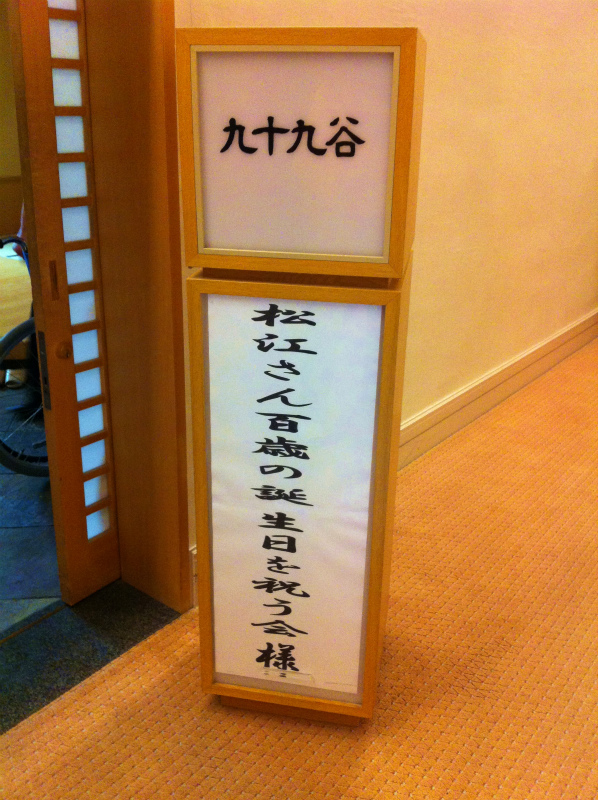 九十九谷
松江さん百歳の誕生日を祝う会様